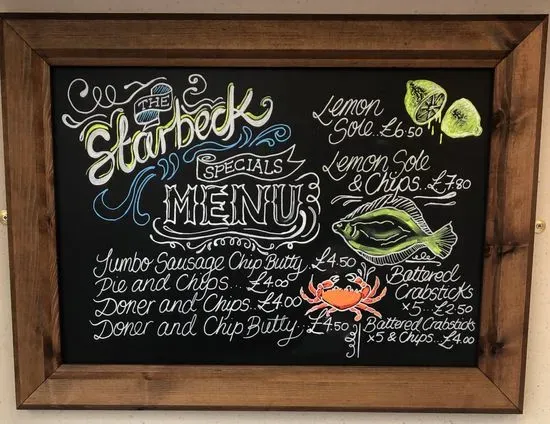 THE
Starbeck
SPECIALS
MENU
Jumbo Sausage Chip Butty..£4.50
Pie and Chips...£4.00
Doner and Chips...£4.00
Doner and Chip Butty..£4.50
Lemon
Sole..£6.50
Lemon Sole
& Chips..£7.80
Battered
Crabsticks
x5...£2.50
Battered Crabsticks
x5 & Chips...£4.00